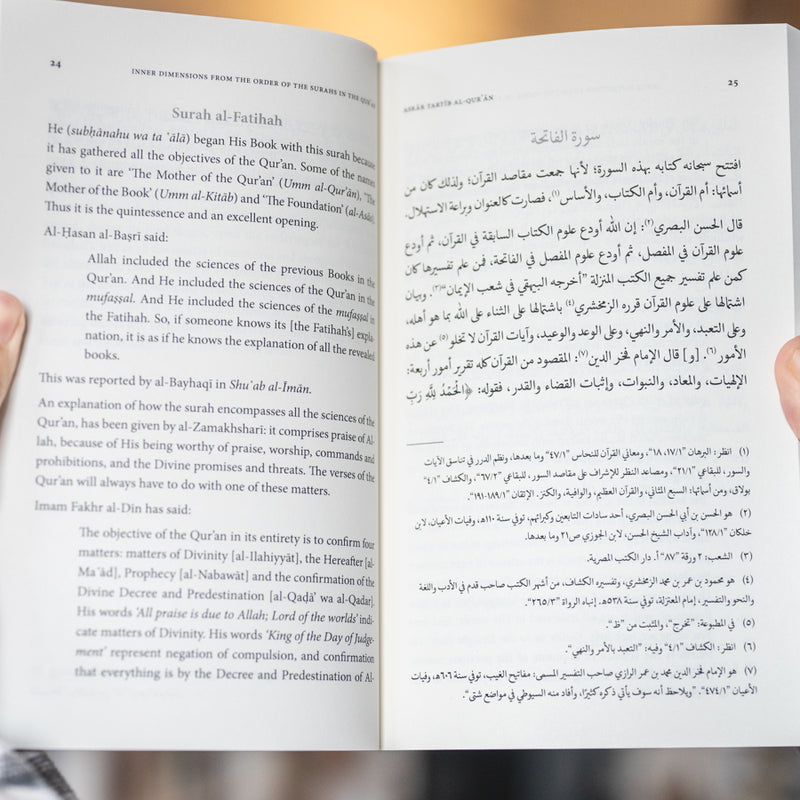 24
INNER DIMENSIONS FROM THE ORDER OF THE SURAHS IN THE QUR'AN
Surah al-Fatihah
He (subḥānahu wa ta ʿālā) began His Book with this surah because
it has gathered all the objectives of the Qur'an. Some of the names
given to it are 'The Mother of the Qur'an' (Umm al-Qur'ān), 'The
Mother of the Book' (Umm al-Kitāb) and 'The Foundation' (al-Asās).
Thus it is the quintessence and an excellent opening.
Al-Ḥasan al-Baṣrī said:
Allah included the sciences of the previous Books in the
Qur'an. And He included the sciences of the Qur'an in the
mufaṣṣal. And He included the sciences of the mufaṣṣal in
the Fatihah. So, if someone knows its [the Fatihah's] expla-
nation, it is as if he knows the explanation of all the revealed
books.
This was reported by al-Bayhaqī in Shuʿab al-Īmān.
An explanation of how the surah encompasses all the sciences of the
Qur'an, has been given by al-Zamakhsharī: it comprises praise of Al-
lah, because of His being worthy of praise, worship, commands and
prohibitions, and the Divine promises and threats. The verses of the
Qur'an will always have to do with one of these matters.
Imam Fakhr al-Din has said:
The objective of the Qur'an in its entirety is to confirm four
matters: matters of Divinity [al-Ilahiyyāt], the Hereafter [al-
Maʿād], Prophecy [al-Nabawāt] and the confirmation of the
Divine Decree and Predestination [al-Qaḍā' wa al-Qadar].
His words 'All praise is due to Allah; Lord of the worlds' indi-
cate matters of Divinity. His words 'King of the Day of Judge-
ment' represent negation of compulsion, and confirmation
that everything is by the Decree and Predestination of Al-
25
ASRĀR TARTĪB AL-QUR'ĀN
سورة الفاتحة
افتتح سبحانه كتابه بهذه السورة؛ لأنها جمعت مقاصد القرآن؛ ولذلك كان من
أسمائها: أم القرآن، وأم الكتاب، والأساس(١)، فصارت كالعنوان وبراعة الاستهلال.
قال الحسن البصري(٢): إن الله أودع علوم الكتاب السابقة في القرآن، ثم أودع
علوم القرآن في المفصل، ثم أودع علوم المفصل في الفاتحة، فمن علم تفسيرها كان
كمن علم تفسير جميع الكتب المنزلة "أخرجه البيهقي في شعب الإيمان"(٣). وبيان
اشتمالها على علوم القرآن قرره الزمخشري(٤) باشتمالها على الثناء على الله بما هو أهله،
وعلى التعبد، والأمر والنهي، وعلى الوعد والوعيد، وآيات القرآن لا تخلو(٥) عن هذه
الأمور(٦). [و] قال الإمام فخر الدين(٧): المقصود من القرآن كله تقرير أمور أربعة:
الإلهيات، والمعاد، والنبوات، وإثبات القضاء والقدر، فقوله: ﴿الْحَمْدُ لِلَّهِ رَبِّ
(١) انظر: البرهان "١٧/١، ١٨"، ومعاني القرآن للنحاس "٤٧/١" وما بعدها، ونظم الدرر في تناسق الآيات
والسور، للبقاعي "٢١/١"، ومصاعد النظر للإشراف على مقاصد السور، للبقاعي "٦٧/٢"، والكشاف "٤/١"
بولاق، ومن أسمائها: السبع المثاني، والقرآن العظيم، والوافية، والكنز. الإتقان "١٨٩/١-١٩١".
(٢) هو الحسن بن أبي الحسن البصري، أحد سادات التابعين وكبرائهم، توفي سنة ١١٠هـ، وفيات الأعيان، لابن
خلكان "١٢٨/١"، وآداب الشيخ الحسن، لابن الجوزي ص٢١ وما بعدها.
(٣) الشعب: ٢ ورقة "٨٧" أ. دار الكتب المصرية.
(٤) هو محمود بن عمر بن محمد الزمخشري، وتفسيره الكشاف، من أشهر الكتب صاحب قدم في الأدب واللغة
والنحو والتفسير، إمام المعتزلة، توفي سنة ٥٣٨هـ. إنباه الرواة "٢٦٥/٣".
(٥) في المطبوعة: "تخرج"، والمثبت من "ظ".
(٦) انظر: الكشاف "٤/١" وفيه: "التعبد بالأمر والنهي".
(٧) هو الإمام فخر الدين محمد بن عمر الرازي صاحب التفسير المسمى: مفاتيح الغيب، توفي سنة ٦٠٦هـ، وفيات
الأعيان "٤٧٤/١". "ويلاحظ أنه سوف يأتي ذكره كثيرًا، وأفاد منه السيوطي في مواضع شتى".